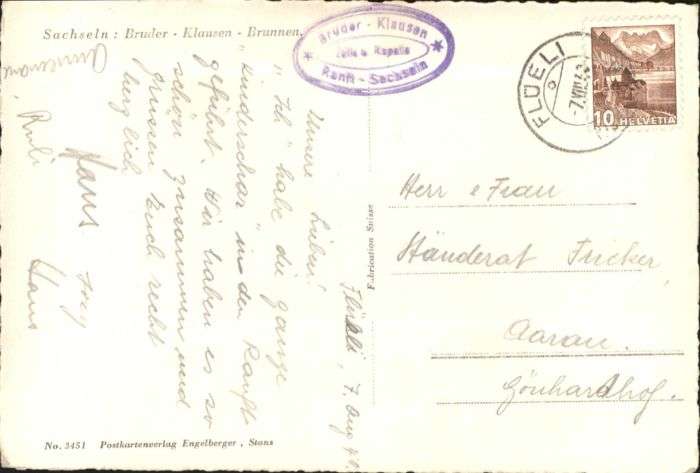 Sachseln: Bruder - Klausen - Brunnen.
Bruder - Klausen
Zelle u. Kapelle
Ranft - Sachseln
FLÜELI
7.VIII.43
10 HELVETIA
Flüeli, 7. Aug 43
Unsere Lieben!
"Ich" habe die ganze
"Kinderschar" in den Ranft
geführt. Wir haben es so
schön zusammen und
grüssen Euch recht
herzlich
Hans
Annemarie
Ruli
Hans
Herr & Frau
Ständerat Fricker,
Aarau.
Gönhardhof.
Fabrication Suisse
No. 3451 Postkartenverlag Engelberger, Stans